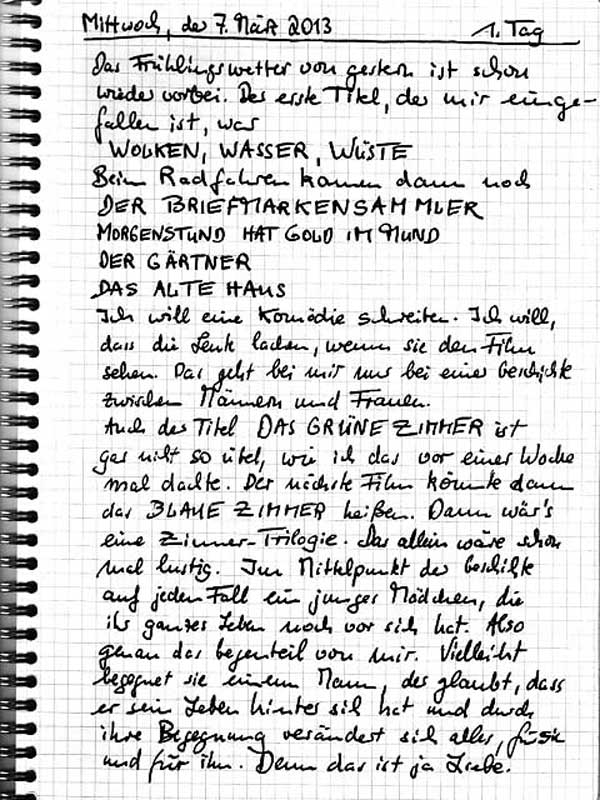 Mittwoch, der 7. März 2013 1. Tag
Das Frühlingswetter von gestern ist schon
wieder vorbei. Der erste Titel, der mir einge-
fallen ist, war
WOLKEN, WASSER, WÜSTE
Beim Radfahren kamen dann noch
DER BRIEFMARKENSAMMLER
MORGENSTUND HAT GOLD IM MUND
DER GÄRTNER
DAS ALTE HAUS
Ich will eine Komödie schreiben. Ich will,
dass die Leute lachen, wenn sie den Film
sehen. Das geht bei mir nur bei einer Geschichte
zwischen Männern und Frauen.
Auch der Titel DAS GRÜNE ZIMMER ist
gar nicht so übel, wie ich das vor einer Woche
mal dachte. Der nächste Film könnte dann
das BLAUE ZIMMER heißen. Dann wär's
eine Zimmer-Trilogie. Das allein wäre schon
mal lustig. Im Mittelpunkt der Geschichte
auf jeden Fall ein junges Mädchen, die
ihr ganzes Leben noch vor sich hat. Also
genau das Gegenteil von mir. Vielleicht
begegnet sie einem Mann, der glaubt, dass
er sein Leben hinter sich hat und durch
ihre Begegnung verändert sich alles, für sie
und für ihn. Denn das ist ja Liebe.